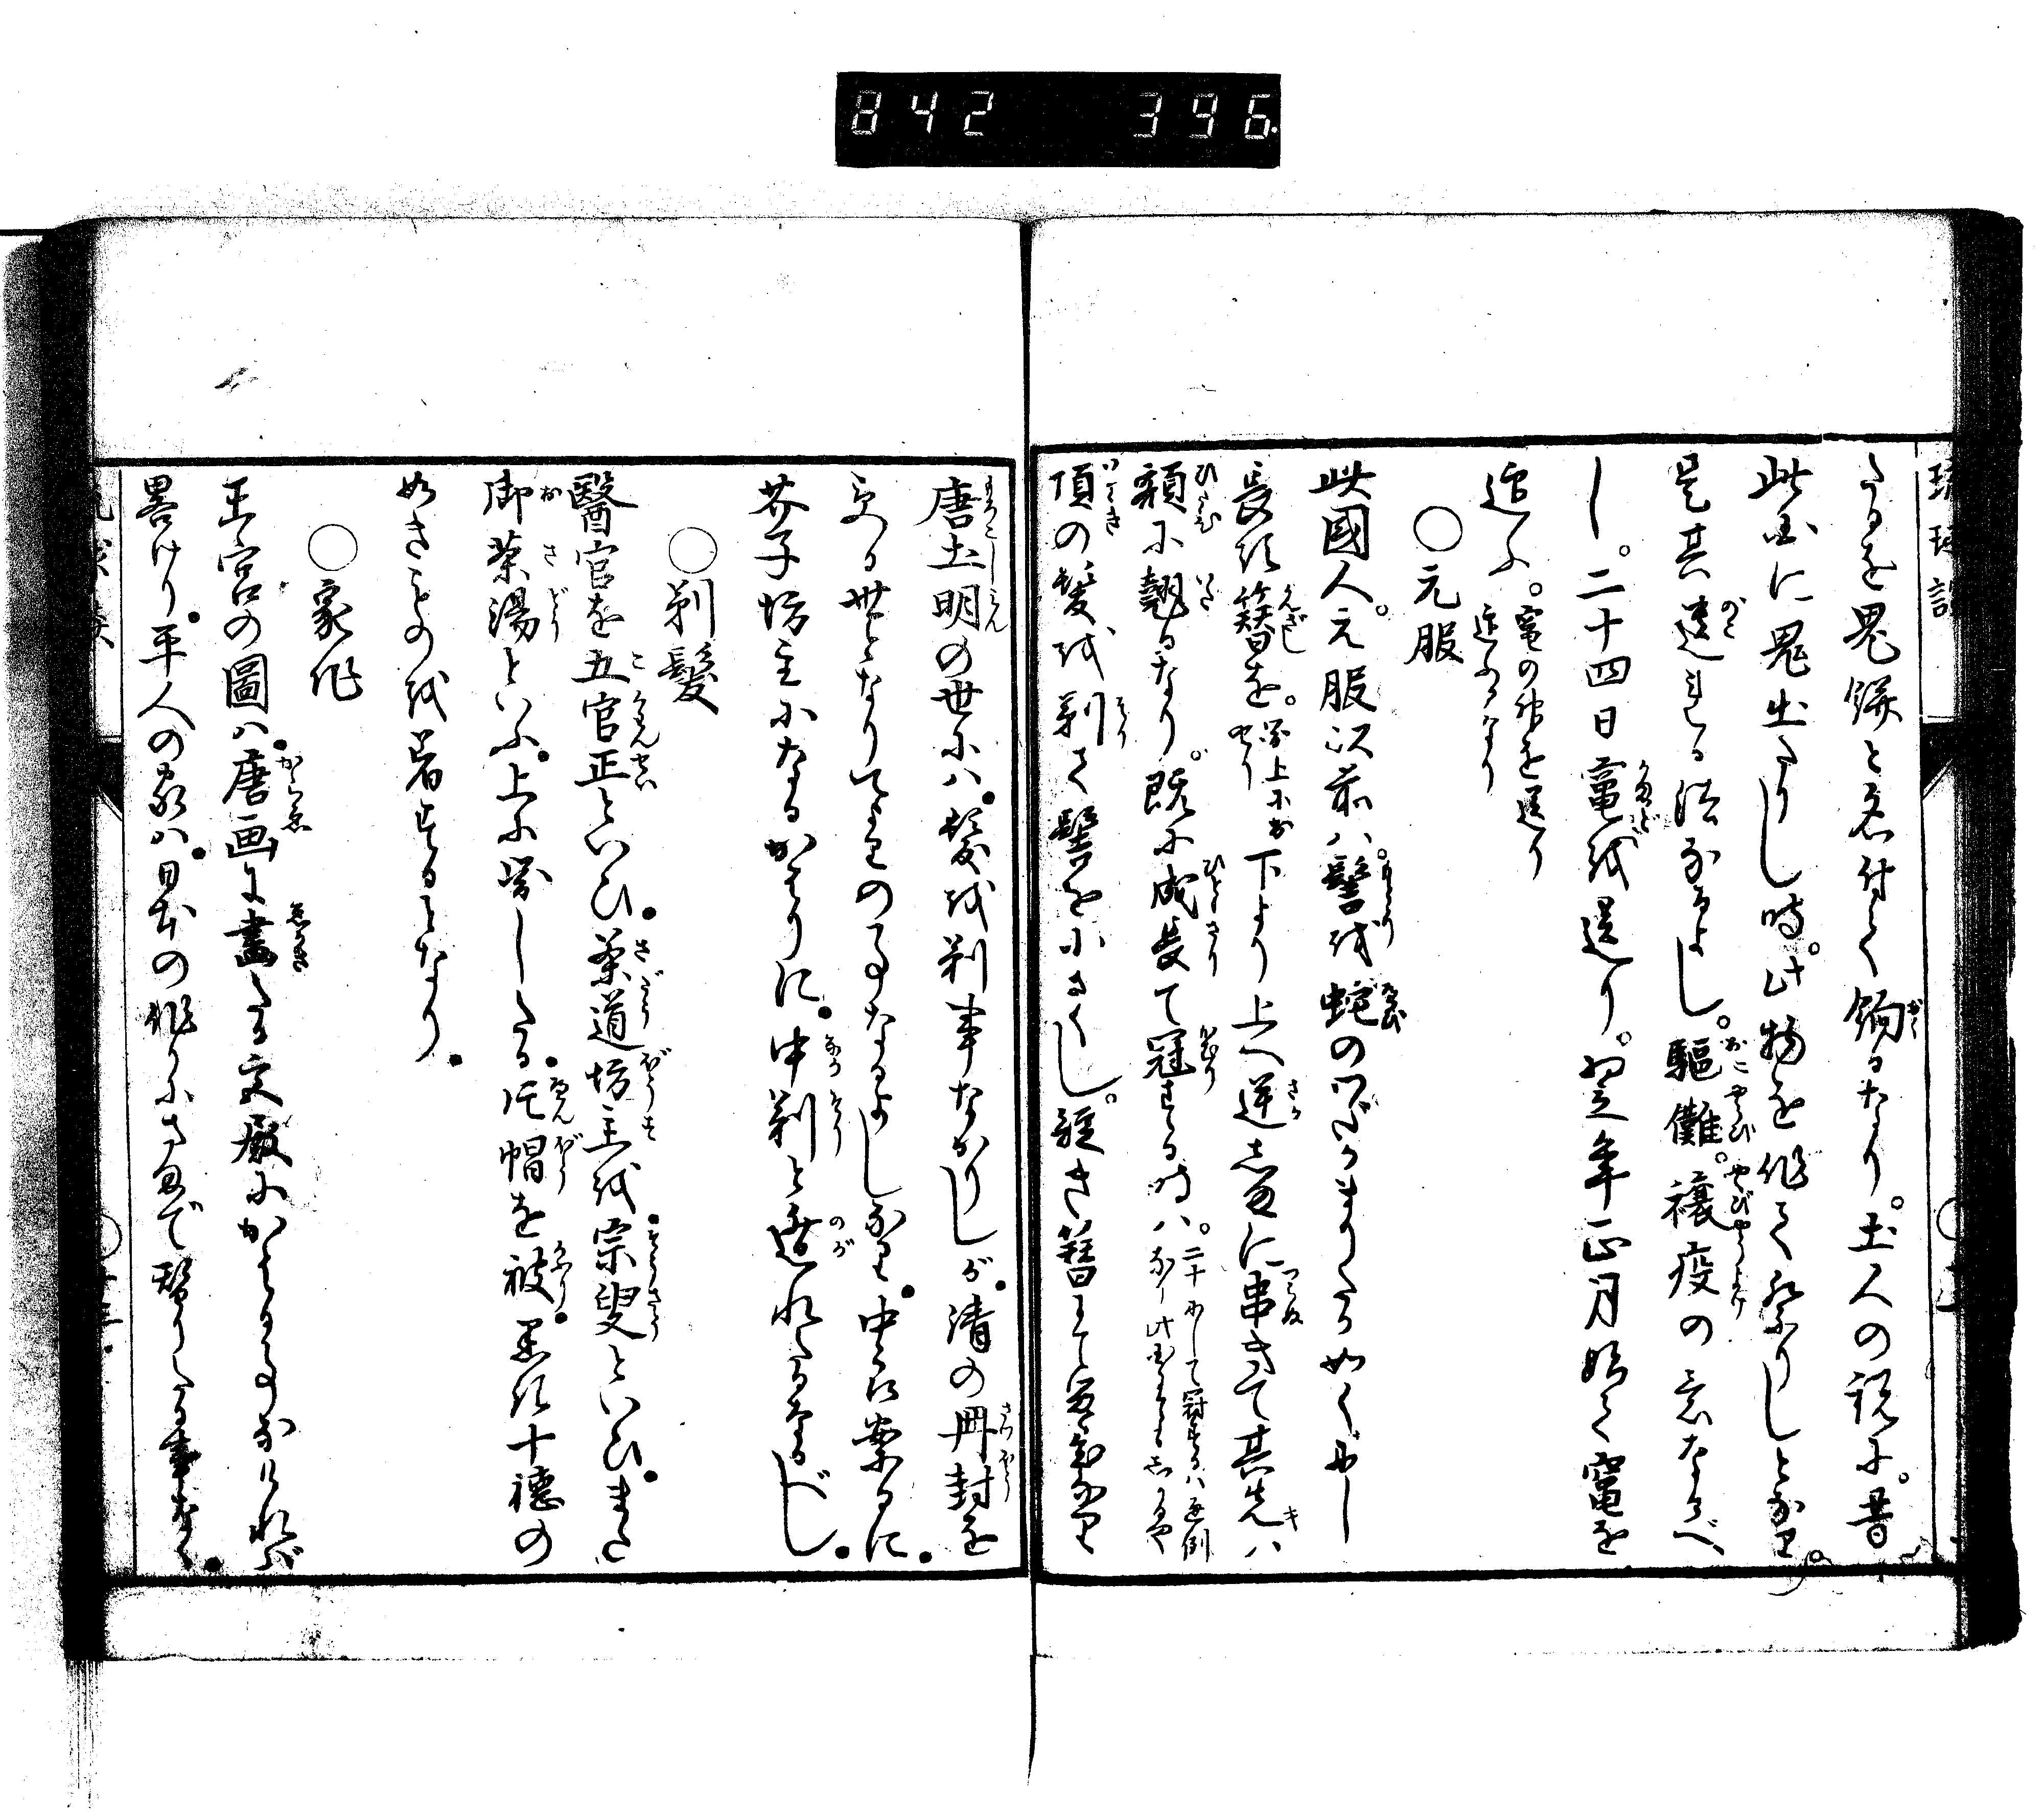 842 396
琉球談
たるを鬼餅と名付て餉るなり。土人の説に。昔
此国に鬼出たりし時。此物を作て祭りしと なり。
是其遺れる法なるよし。駆儺。禳疫の意なるべ
し。二十四日竈を送り。翌年正月始て竈を
迎ふ。竈の神を送り迎ふるなり
○元服
此國人。元服以前ハ。髻を蛇のわだかまりたる如くにし
長き簪を。下より上へ逆しまに串きて其先ハ
額に翹るなり。既に成長て冠する時ハ。
頂の髪を剃て髻を小さくし。短き簪にて
唐土明の世にハ。髪を剃事なかりしが。清の冊封を
受る世となりてよりの事なるよしなり。中良案るに。
芥子坊主になるかはりに。中剃と遁れたるなるべし。
○剃髪
醫官を五官正といひ。茶道坊主を。宗叟といひ。また
御茶湯といふ。上に學したる。片帽を被。黒き十徳の
如きものを着するとなり。
○家作
王宮の圖ハ。唐画に畫たる文廠にかはる事なければ
畧けり。平人の家ハ。日本の作りにさまで替りたる事なく。